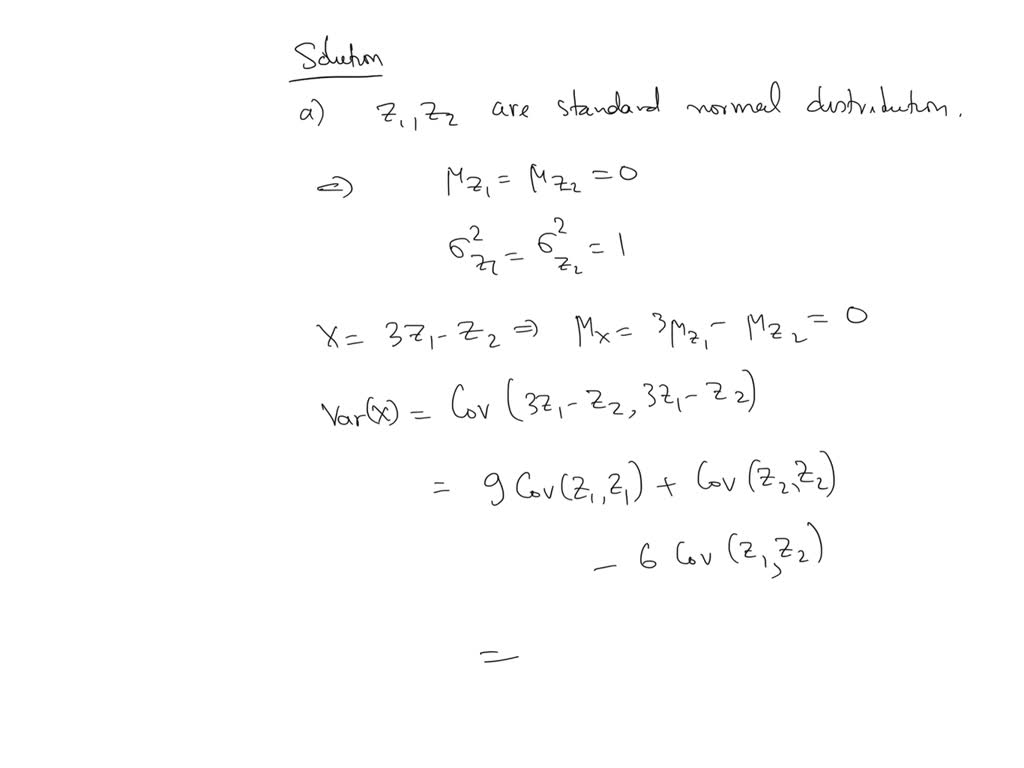 Solution
a) Z₁, Z₂ are standard normal distribution.
⇒ μ_Z₁ = μ_Z₂ = 0
σ²_Z₁ = σ²_Z₂ = 1
X = 3Z₁ - Z₂ ⇒ μ_X = 3μ_Z₁ - μ_Z₂ = 0
Var(X) = Cov (3Z₁ - Z₂, 3Z₁ - Z₂)
= 9 Cov(Z₁, Z₁) + Cov (Z₂, Z₂)
- 6 Cov (Z₁, Z₂)
=